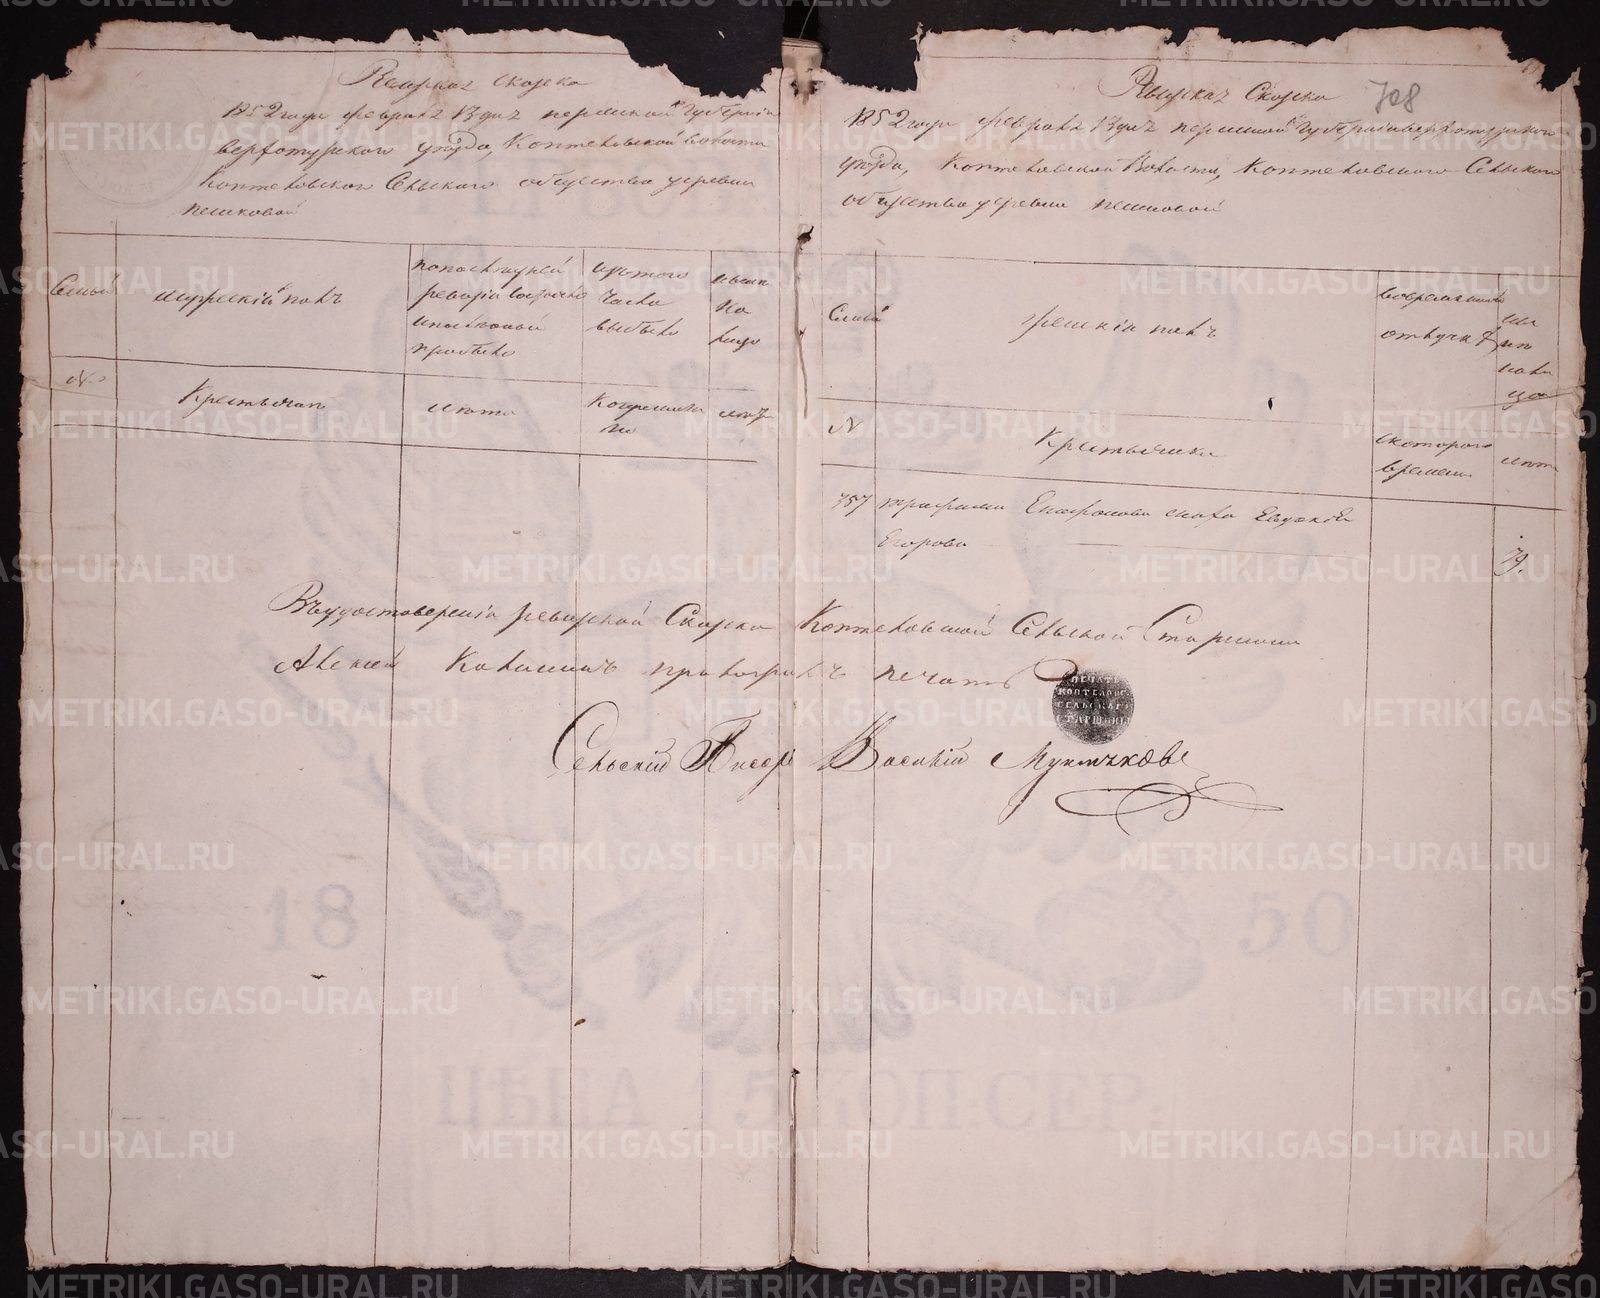 Ревизская сказка
1852 года февраля 17 дня пермской Губернии
верхотурского уезда, Коптеловской волости
Коптеловского Сельского общества деревни
пешковой
Семьи
мужеский полъ
по последней
ревизiи состояло
и после оной
прибыло
изъ того
числа
выбыло
ныне
на
лицо
№
Крестьяне
лета
когда именно
лета
Ревизская Сказка
708
1852 года февраля 17 дня пермской Губернiи верхотурского
уезда, Коптеловской Волости, Коптеловского Сельского
общества деревни пешковой
Семьи
женскiй полъ
во временной
отлучке
ны
не
на ли
цо
№
Крестьянки
с которого
времени
лета
757 трифима сноха Евдокiя
Егорова
39.
Въ удостоверенiи ревизской Сказки Коптеловской Сельской Старшина
Алексей приложилъ печать
ПЕЧАТЬ
КОПТЕЛОВС.
СЕЛЬСКАГО
СТАРШИНЫ
Сельскiй Писарь Василiй
18 50
ЦѢНА 15 КОП: СЕР.
METRIKI.GASO-URAL.RU